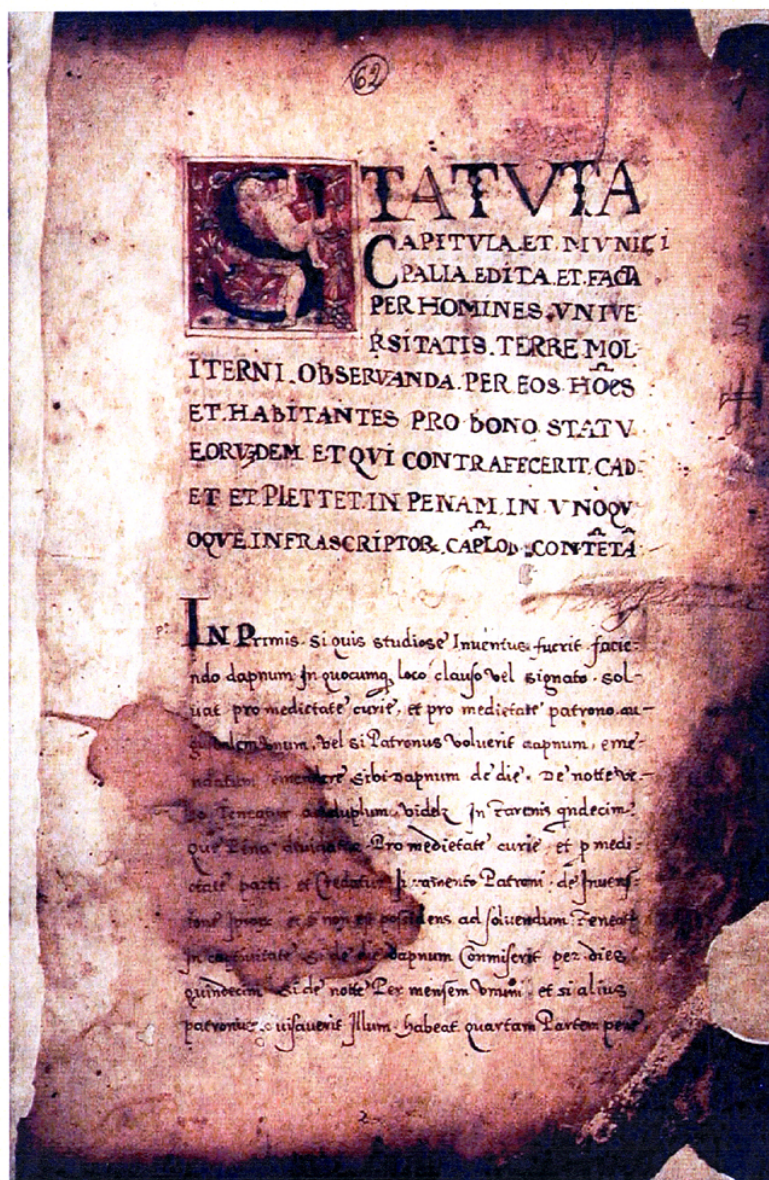 62
STATVTA
CAPITVLA.ET.MVNICI
PALIA.EDITA.ET.FACTA
PER HOMINES.VNIVE
RSITATIS.TERRE MOL
ITERNI.OBSERVANDA.PER EOS.HOES
ET.HABITANTES PRO BONO STATV
EORVDEM ET QVI CONTRAFECERIT.CAD
ET ET PLETTET.IN PENAM.IN VNOQV
OQVE.INFRASCRIPTOR.CAPLOD.CONTETA
IN Primis. Si quis studiose Inuentus fuerit facie-
ndo dapnum In quocumq loco clauso vel signato. sol-
uat pro medietate curie, et pro medietate patrono au-
vel si Patronus voluerit dapnum, eme-
ndatum emendare sibi dapnum de die. De notte ve-
ro Teneatur ad duplum. videlz In tarenis qndecim
que Pena diuidatur. Pro medietate curie et p medi-
etate parti. et Credatur Iuramento Patroni de Inuen-
tione et si non est possidens ad soluendum Teneatr
In captiuitate Si de die dapnum Conmiserit per dies
quindecim Si de notte Per mensem vnum et si alius
patronus auisauerit Illum habeat quartam Partem pene
2